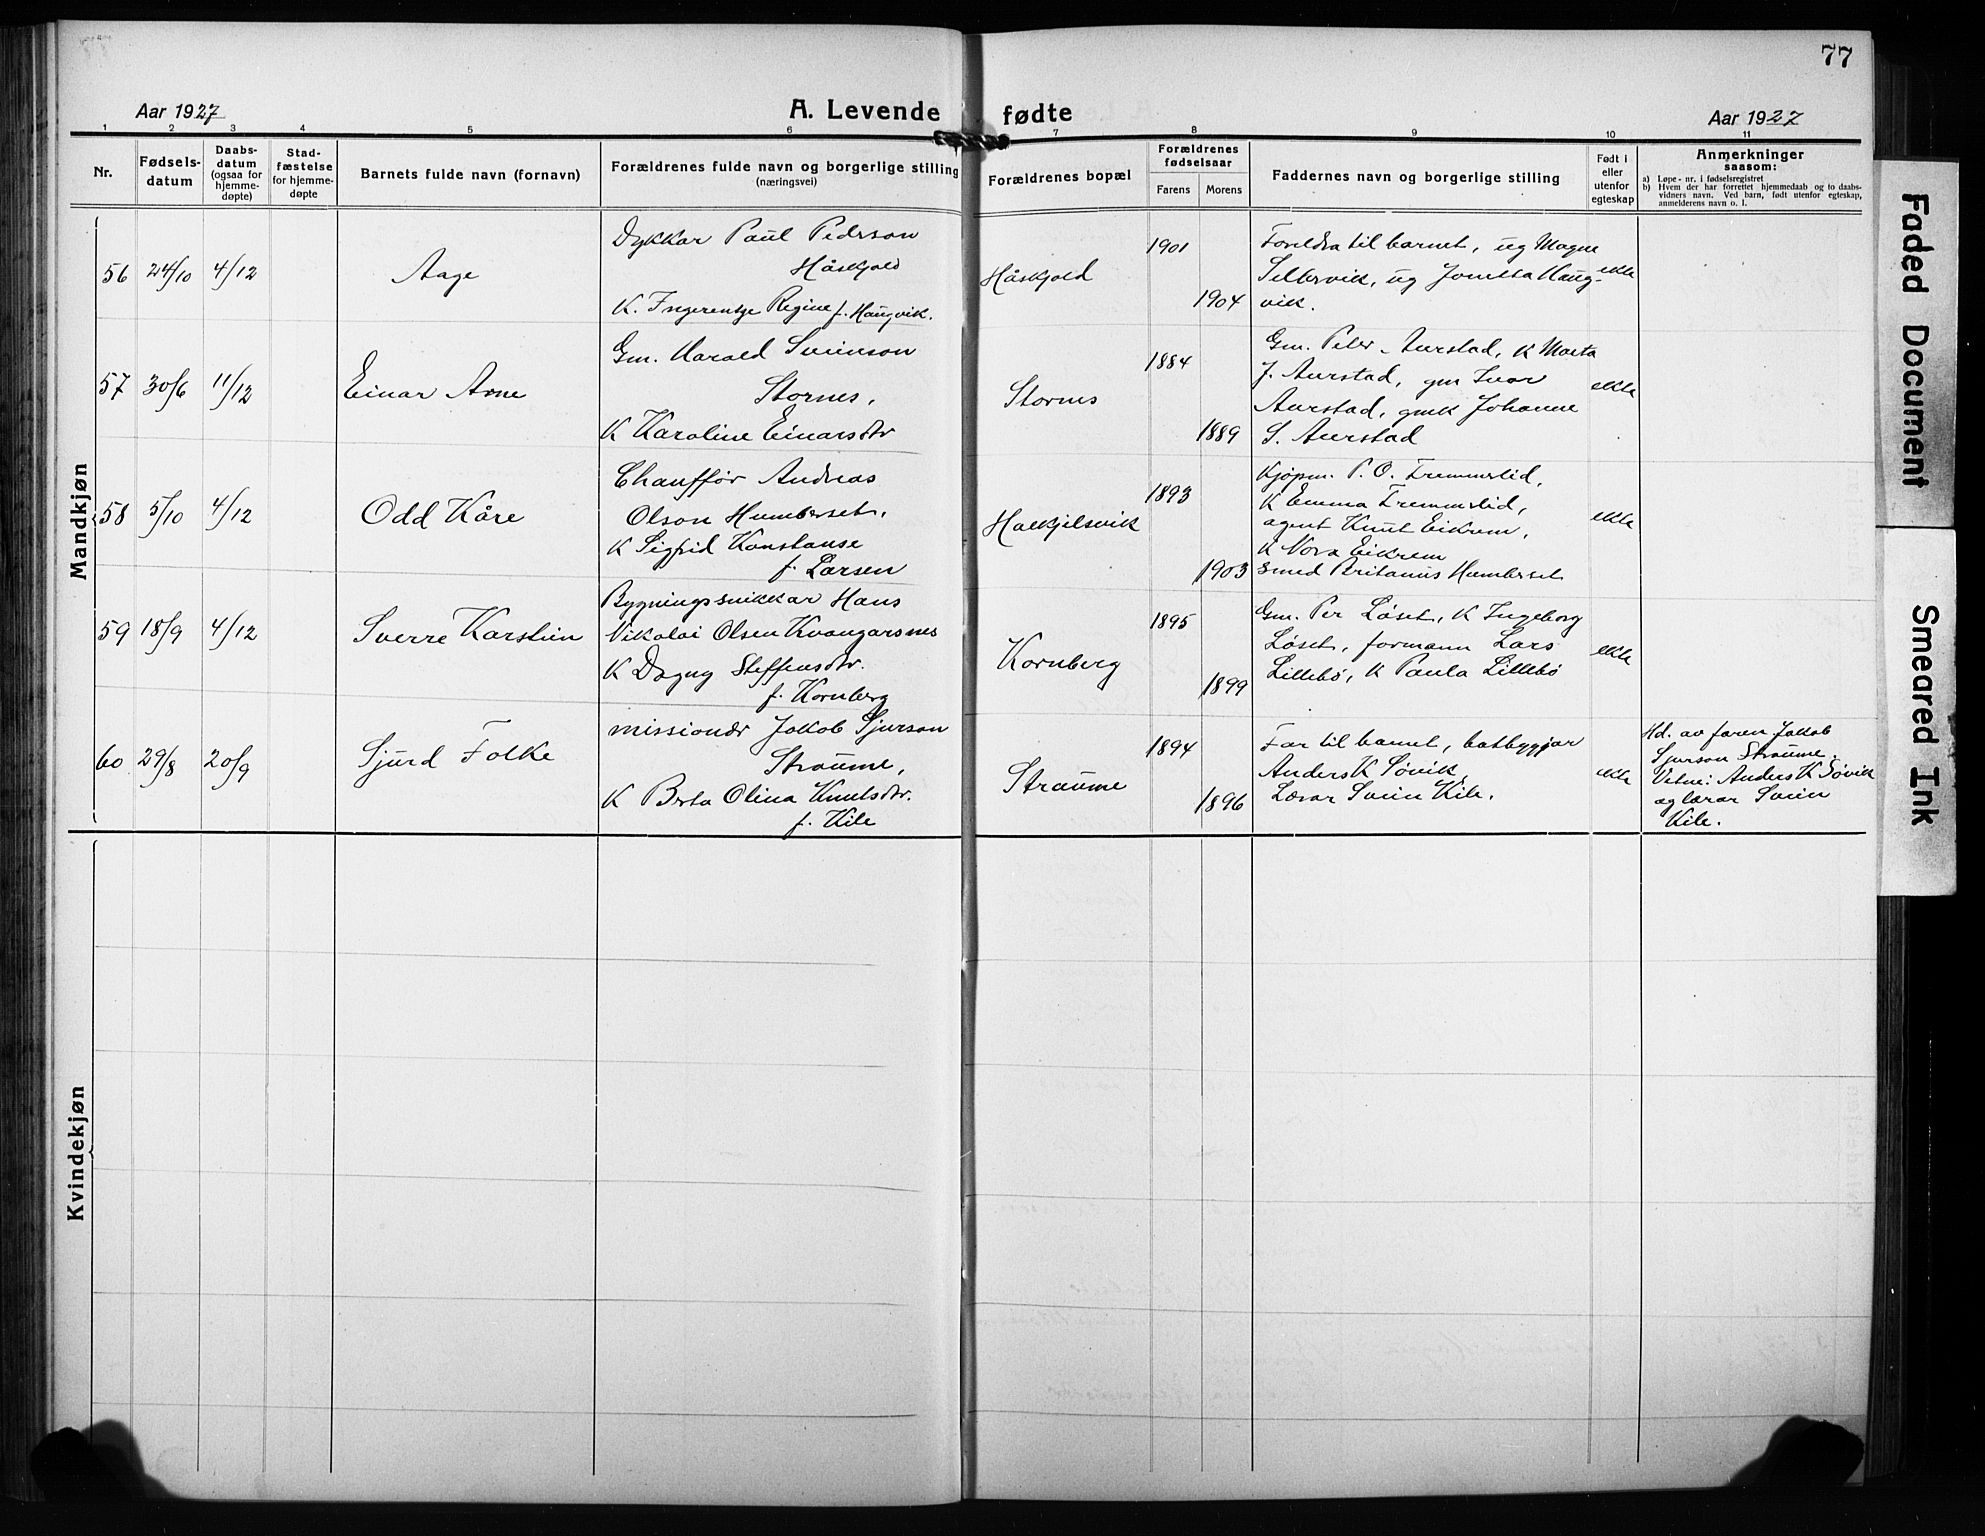 77
Aar 1927
A. Levende fødte
Aar 1927
1 2 3 4 5 6 7 8 9 10 11
Nr.
Fødsels-
datum
Daabs-
datum
(ogsaa for
hjemme-
døpte)
Stad-
fæstelse
for hjemme-
døpte
Barnets fulde navn (fornavn)
Forældrenes fulde navn og borgerlige stilling
(næringsvei)
Forældrenes bopæl
Forældrenes
fødselsaar
Farens
Morens
Faddernes navn og borgerlige stilling
Født i
eller
utenfor
egteskap
Anmerkninger
saasom:
a) Løpe-nr. i fødselsregistret
b) Hvem der har forrettet hjemmedaab og to daabs-
vidners navn. Ved barn, født utenfor egteskap,
anmelderens navn o. l.
Mandkjøn
56 24/10 4/12
Aage
Dykkar Paul Pederson
Håskjold
K. Ingerentse Regine f. Haugvik.
Håskjold
1901
1904
Foreldra til barnet, og Magne
Sellervik, og Jonetta Haug-
vik.
ekte
57 30/6 11/12
Einar Arne
Gm. Harald Sveinson
Stornes,
K Karoline Einarsdtr
Stornes
1884
1889
Gm. Peter Aurstad, K Marta
J. Aurstad, gm Ivar
Aurstad, gmk Johanne
S. Aurstad
ekte
58 5/10 4/12
Odd Kåre
Chauffør Andreas
Olson Humberset,
K Sigfrid Konstanse
f. Larsen
Halkjelsvik
1893
1903
Kjøpm. P. O. Fremmerlid,
K Emma Fremmerlid,
agent Knut Eikrem,
K Nora Eikrem
smed Britanus Humberset
ekte
59 18/9 4/12
Sverre Karstein
Bygningssnikkar Hans
Nikolai Olsen Kvangarsnes
K Dagny Steffensdtr.
f. Kornberg
Kornberg
1895
1899
Gm. Per Løset, K Ingeborg
Løset, formann Lars
Lillebø, K Paula Lillebø
ekte
60 29/8 20/9
Sjurd Folke
missionær Jakob Sjurson
Straume,
K Berta Olina Knutsdtr.
f. Kile
Straume
1894
1896
Far til barnet, båtbyggjar
Anders K Søvik
Lærar Svein Kile.
ekte
Hd. av faren Jakob
Sjurson Straume.
Vitne: Anders K Søvik
og lærar Svein
Kile.
Kvindekjøn
Faded Document
Smeared Ink